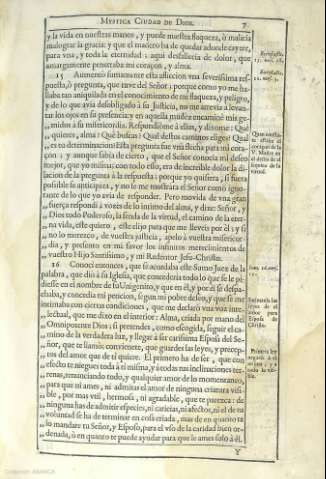 MYSTICA CIUDAD DE DIOS. 7
y la vida en nuestras manos, y puede nuestra flaqueza, ò malicia
malograr la gracia: y que el madero ha de quedar adonde cayere,
para vna, y toda la eternidad; aqui desfallecia de dolor, que
amargamente penetraba mi coraçon, y alma.
15 Aumentò sumamente esta afliccion vna severissima res-
puesta, ò pregunta, que tuve del Señor; porque como yo me ha-
llaba tan aniquilada en el conocimiento de mi flaqueza, y peligro,
y de lo que avia desobligado à su Justicia, no me atrevia à levan-
tar los ojos en su presencia; y en aquella mudez encaminè mis ge-
midos à su misericordia. Respondiòme à ellos, y dixome: Què
quieres, alma? Què buscas? Què destos caminos eliges? Què
es tu determinacion? Esta pregunta fue vna flecha para mi cora-
çon; y aunque sabia de cierto, que el Señor conocia mi deseo
mejor, que yo misma; con todo esso, era de increible dolor la di-
lacion de la pregunta à la respuesta: porque yo quisiera, si fuera
possible se anticipàra, y no se me mostràra el Señor como igno-
rante de lo que yo avia de responder. Pero movida de vna gran
fuerça respondì à vozes de lo intimo del alma, y dixe: Señor, y
Dios todo Poderoso, la senda de la virtud, el camino de la eter-
na vida, este quiero, este elijo para que me lleveis por èl; y si
no lo merezco, de vuestra justicia, apelo à vuestra misericor-
dia, y presento en mi favor los infinitos merecimientos de
vuestro Hijo Santissimo, y mi Redentor Jesu-Christo.
16 Conocì entonces, que se acordaba este Sumo Juez de la
palabra, que diò à su Iglesia, que concederia todo lo que se le pi-
diesse en el nombre de su Unigenito, y que en èl, y por èl se despa-
chaba, y concedia mi peticion, segun mi pobre deseo, y que se me
intimaban con ciertas condiciones, que me declarò vna voz inte-
lectual, que me dixo en el interior: Alma, criada por mano del
Omnipotente Dios; si pretendes, como escogida, seguir el ca-
mino de la verdadera luz, y llegar à ser carissima Esposa del Se-
ñor, que te llama; conviente, que guardes las leyes, y precep-
tos del amor que de ti quiere. El primero ha de ser, que con
efecto te niegues toda à ti misma, y à todas tus inclinaciones ter-
renas, renunciando todo, y qualquier amor de lo momentaneo,
para que ni ames, ni admitas el amor de ninguna criatura visi-
ble, por mas vtil, hermosa, ni agradable, que te parezca: de
ninguna has de admitir especies, ni caricias, ni afectos, ni el de tu
voluntad se ha de terminar en cosa criada, mas de en quanto te
lo mandare tu Señor, y Esposo, para el vso de la caridad bien or-
denada, ò en quanto te puede ayudar para que le ames solo à èl.
Y